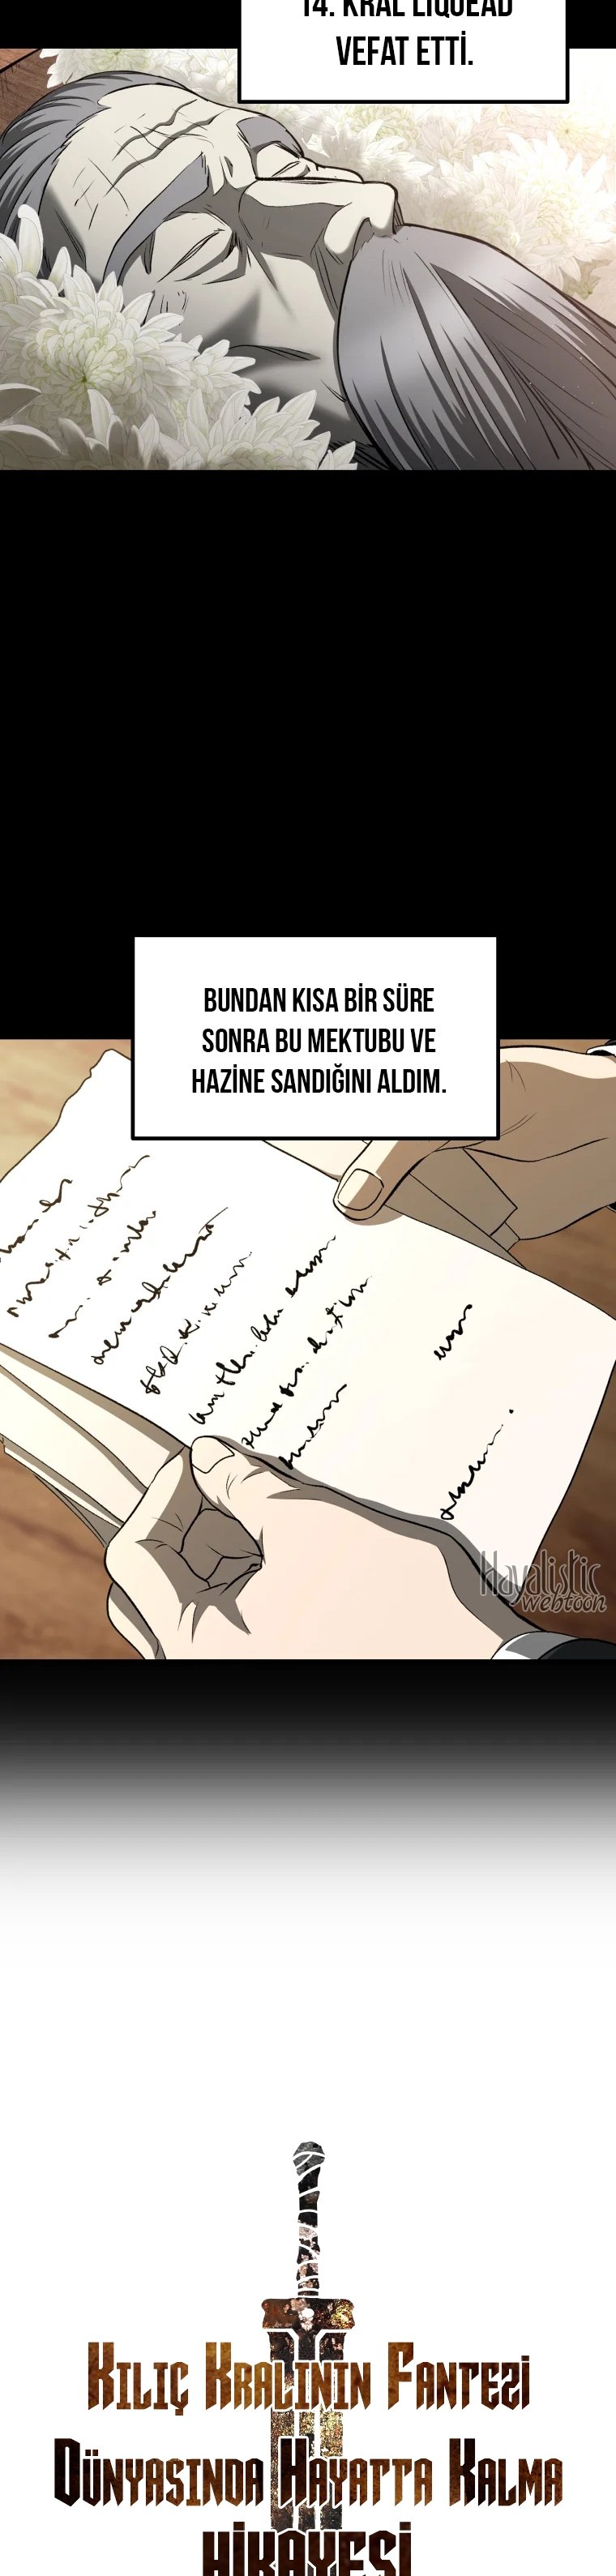 14. KRAL LIQUEAD
VEFAT ETTİ.
BUNDAN KISA BİR SÜRE
SONRA BU MEKTUBU VE
HAZİNE SANDIĞINI ALDIM.
Hayalistic
webtoon
KILIÇ KRALININ FANTEZİ
DÜNYASINDA HAYATTA KALMA
HİKAYESİ